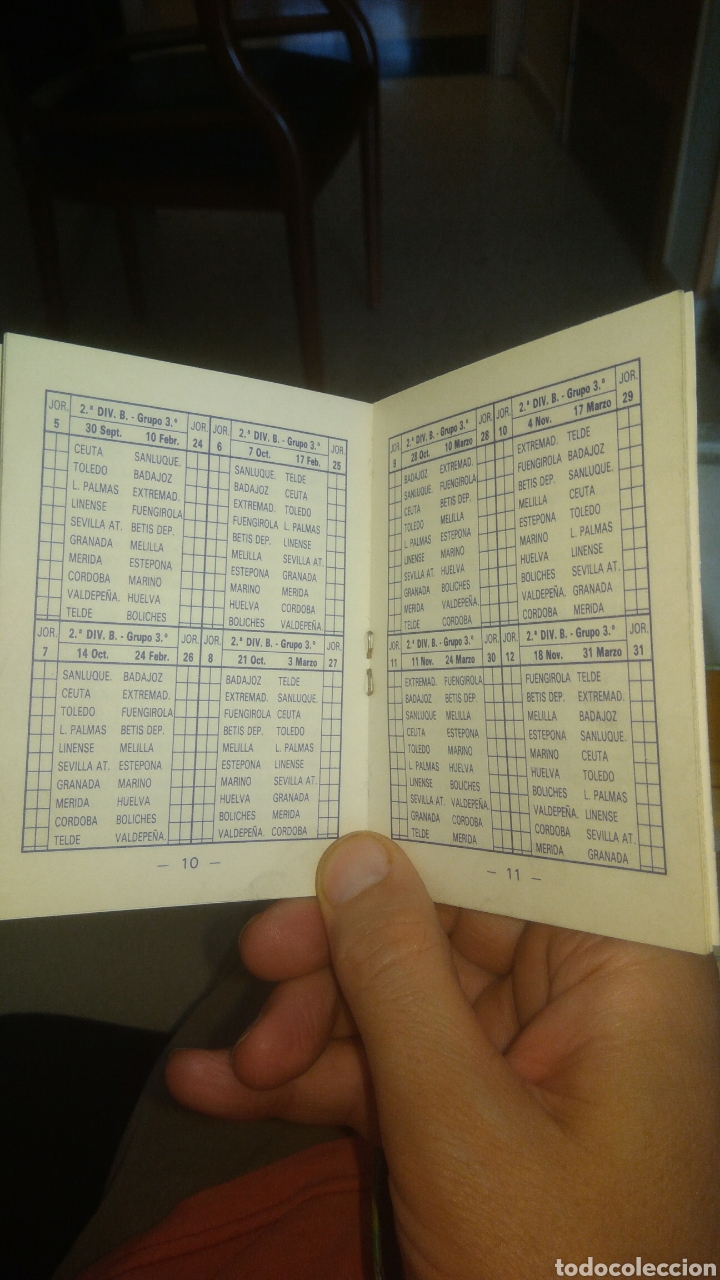 JOR. 5 2.ª DIV. B. - Grupo 3.ª JOR. 24
30 Sept. 10 Febr.
CEUTA SANLUQUE.
TOLEDO BADAJOZ
L. PALMAS EXTREMAD.
LINENSE FUENGIROLA
SEVILLA AT. BETIS DEP.
GRANADA MELILLA
MERIDA ESTEPONA
CORDOBA MARINO
VALDEPEÑ. HUELVA
TELDE BOLICHES
6 2.ª DIV. B. - Grupo 3.ª JOR. 25
7 Oct. 17 Feb.
SANLUQUE. TELDE
BADAJOZ CEUTA
EXTREMAD. TOLEDO
FUENGIROLA L. PALMAS
BETIS DEP. LINENSE
MELILLA SEVILLA AT.
ESTEPONA GRANADA
MARINO MERIDA
HUELVA CORDOBA
BOLICHES VALDEPEÑA.
JOR. 7 2.ª DIV. B. - Grupo 3.ª JOR. 26
14 Oct. 24 Febr.
SANLUQUE. BADAJOZ
CEUTA EXTREMAD.
TOLEDO FUENGIROLA
L. PALMAS BETIS DEP.
LINENSE MELILLA
SEVILLA AT. ESTEPONA
GRANADA MARINO
MERIDA HUELVA
CORDOBA BOLICHES
TELDE VALDEPEÑA.
8 2.ª DIV. B. - Grupo 3.ª JOR. 27
21 Oct. 3 Marzo
BADAJOZ TELDE
EXTREMAD. SANLUQUE.
FUENGIROLA CEUTA
BETIS DEP. TOLEDO
MELILLA L. PALMAS
ESTEPONA LINENSE
MARINO SEVILLA AT.
HUELVA GRANADA
BOLICHES MERIDA
VALDEPEÑA. CORDOBA
— 10 —
JOR. 9 2.ª DIV. B. - Grupo 3.ª JOR. 28
28 Oct. 10 Marzo
BADAJOZ EXTREMAD.
SANLUQUE FUENGIROLA
CEUTA BETIS DEP.
TOLEDO MELILLA
L. PALMAS ESTEPONA
LINENSE MARINO
SEVILLA AT. HUELVA
GRANADA BOLICHES
MERIDA VALDEPEÑA.
TELDE CORDOBA
JOR. 10 2.ª DIV. B. - Grupo 3.ª JOR. 29
4 Nov. 17 Marzo
EXTREMAD. TELDE
FUENGIROLA BADAJOZ
BETIS DEP. SANLUQUE.
MELILLA CEUTA
ESTEPONA TOLEDO
MARINO L. PALMAS
HUELVA LINENSE
BOLICHES SEVILLA AT.
VALDEPEÑA. GRANADA
CORDOBA MERIDA
JOR. 11 2.ª DIV. B. - Grupo 3.ª JOR. 30
11 Nov. 24 Marzo
EXTREMAD. FUENGIROLA
BADAJOZ BETIS DEP.
SANLUQUE MELILLA
CEUTA ESTEPONA
TOLEDO MARINO
L. PALMAS HUELVA
LINENSE BOLICHES
SEVILLA AT. VALDEPEÑA.
GRANADA CORDOBA
TELDE MERIDA
12 2.ª DIV. B. - Grupo 3.ª JOR. 31
18 Nov. 31 Marzo
FUENGIROLA TELDE
BETIS DEP. EXTREMAD.
MELILLA BADAJOZ
ESTEPONA SANLUQUE.
MARINO CEUTA
HUELVA TOLEDO
BOLICHES L. PALMAS
VALDEPEÑA. LINENSE
CORDOBA SEVILLA AT.
MERIDA GRANADA
— 11 —
todocoleccion